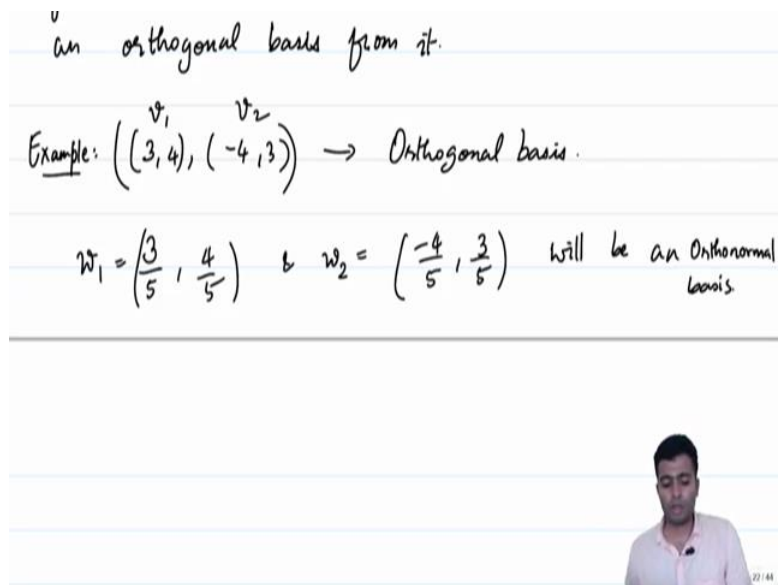 an orthogonal basis from it.
v₁ v₂
Example: ((3,4), (-4,3)) → Orthogonal basis.
w₁ = (3/5, 4/5) & w₂ = (-4/5, 3/5) will be an Orthonormal
basis.
22 / 44